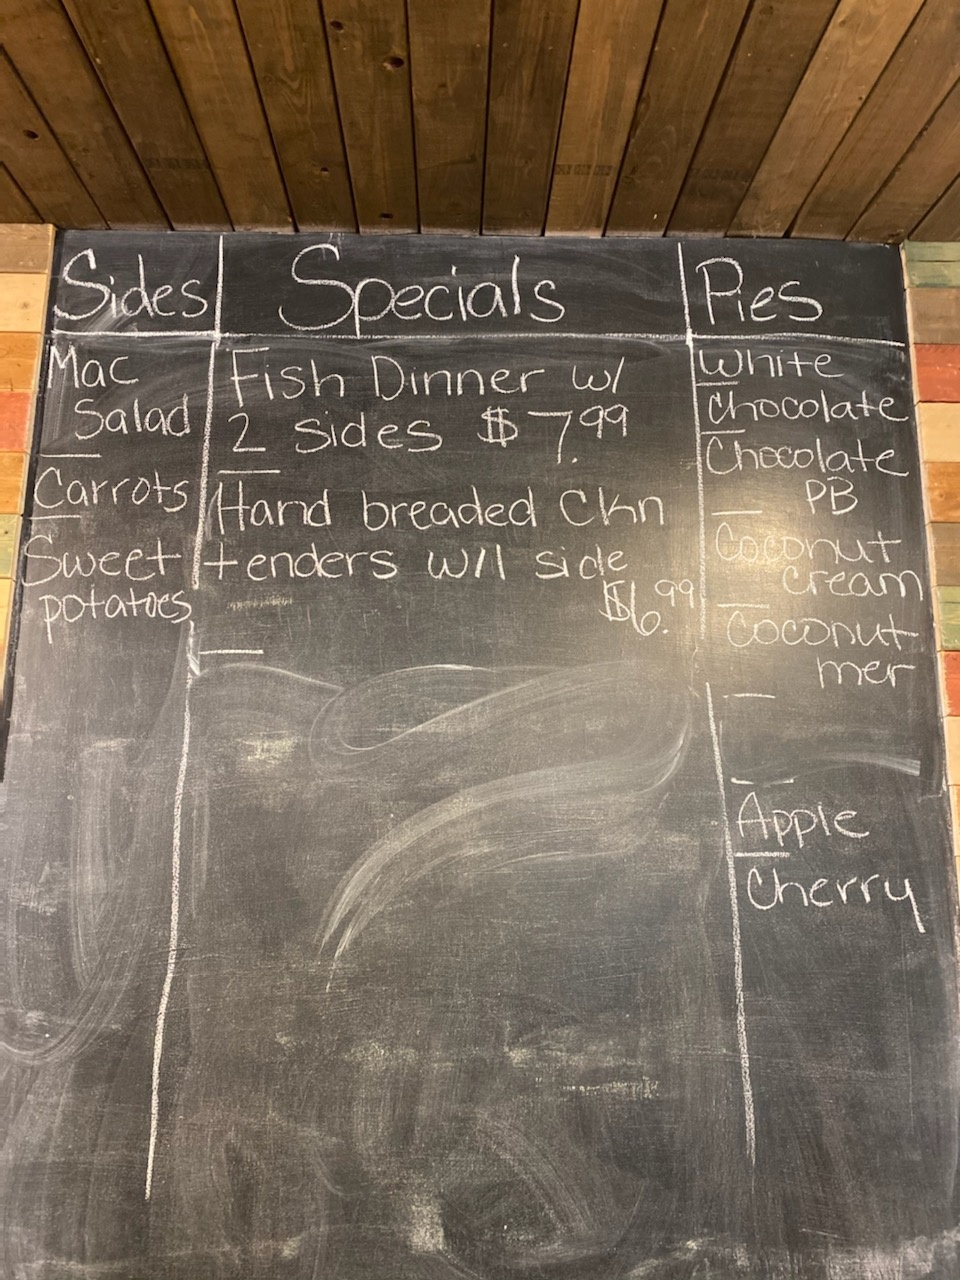 Sides
Mac
Salad
Carrots
Sweet
potatoes
Specials
Fish Dinner w/
2 sides $7.99
Hand breaded Ckn
tenders w/1 side
$6.99
Pies
White
Chocolate
Chocolate
PB
Coconut
cream
Coconut
mer
Apple
Cherry